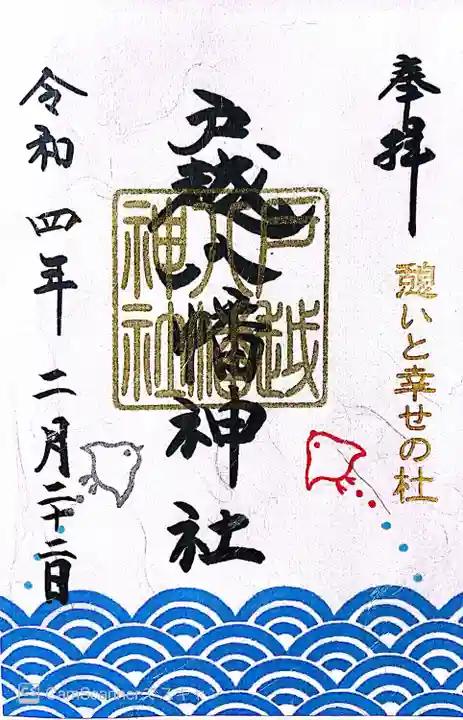 奉拝
憩いと幸せの杜
戸越八幡神社
戸越
八幡
神社
令和四年二月二十二日
CamScanner